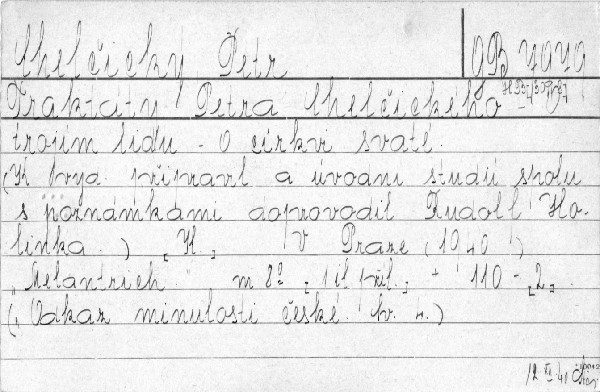 Chelčický Petr
OB 4040
Traktáty Petra Chelčického
trojím lidu - O církvi svaté.
(K vyd. připravil a úvodní studií spolu
s poznámkami doprovodil Rudolf Ho-
linka.) [K] V Praze (1940)
"Melantrich" m 8° [1 il. příl.] + 110 - [2].
(Odkaz minulosti české. Sv. 4.)